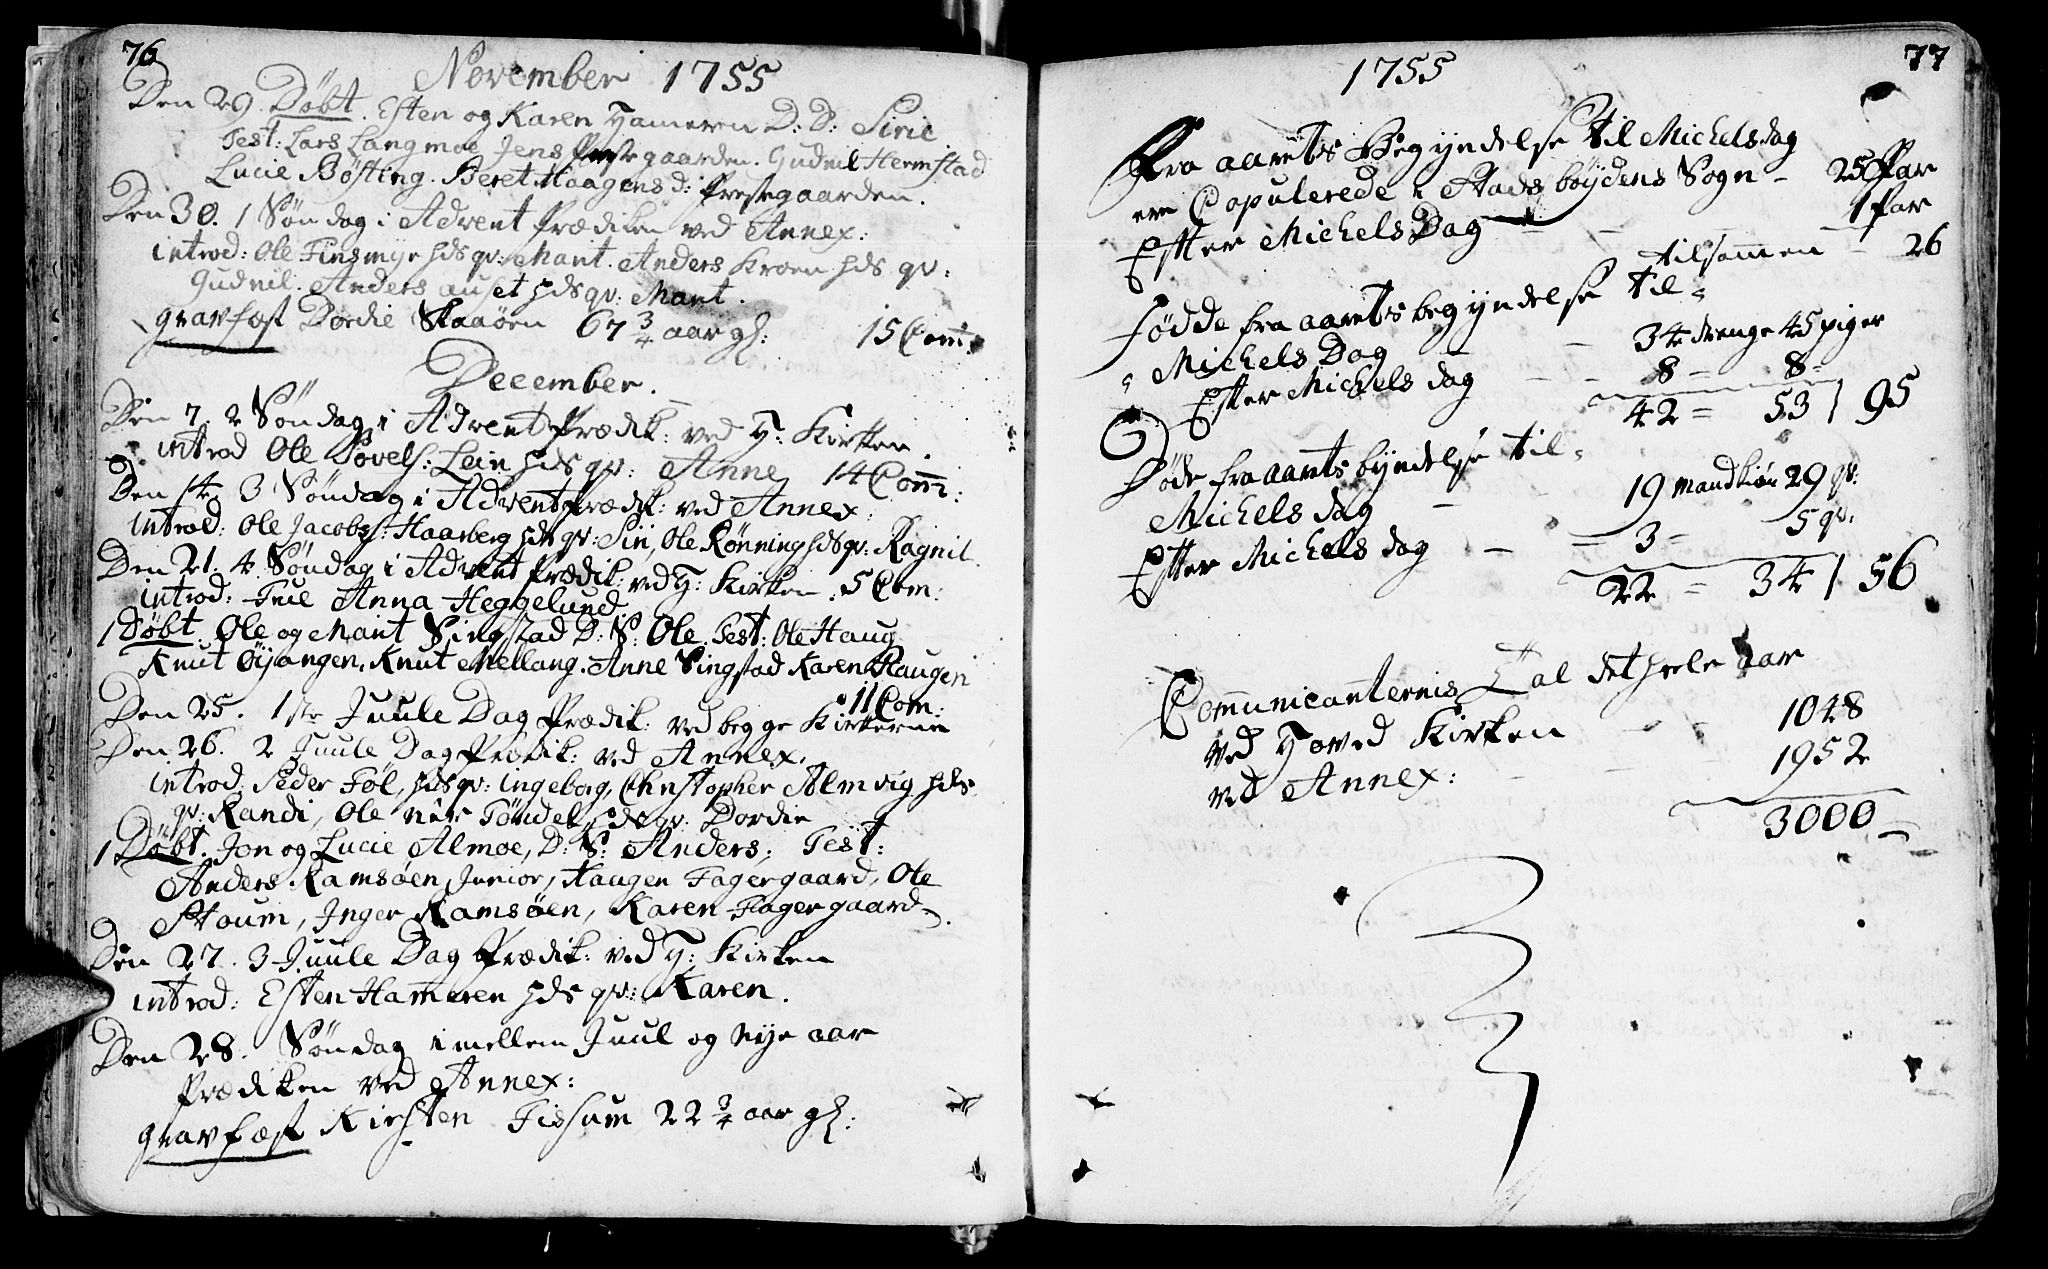 76
November 1755
Den 29. Döbt. Esten og Karen Hameren D: D: Sirie
Test: Lars Langmoe Jens Præstegaarden. Gudnil Hermstad
Lucie Bösting. Beret Haagensd: Præstegaarden.
Den 30. 1 Söndag i Advent Prædiken ved Annex:
introd: Ole Finsmyr hds qv: Marit. Anders Kroen hds qv:
Gudnil. Anders auset hds qv: Marit.
gravfæst Dordie Skaaöen 67 3/4 aar gl: 15 Com:
December.
Den 7. 2 Söndag i Advent Prædik: ved H: Kirken.
introd Ole Povels: Lein hds qv: Anne 14 Com:
Den 14. 3 Söndag i Advent Prædik: ved Annex:
introd: Ole Jacobs: Haarberg hds qv: Siri, Ole Rönning hds qv: Ragnil.
Den 21. 4. Söndag i Advent Prædik: ved H: Kirken. 5 Com:
introd: Anna Heggelund
1 Döbt. Ole og Marit Singstad D: S: Ole. Test: Ole Haug
Knut Öijangen, Knut Mellang. Anne Singstad Karen Haugen
11 Com:
Den 25. 1ste Juule Dag Prædik: ved begge Kirkerne
Den 26. 2 Juule Dag Prædik: ved Annex.
introd: Peder Föl, hds qv: ingeborg, Christopher Almvig hds
qv: Randi, Ole Töndel hds qv: Dordie
1 Döbt. Jon og Lucie Almoe, D: S: Anders; Test:
Anders Ramsöen Junior, Haagen Fagergaard, Ole
Stoum, Inger Ramsöen, Karen Fagergaard.
Den 27. 3 Juule Dag Prædik: ved H: Kirken
introd: Esten Hameren hds qv: Karen.
Den 28. Söndag imellem Juul og Nye aar
Prædiken ved Annex:
gravfæst Kirsten Fissum 22 3/4 aar gl:
77
1755
Fra aarets Begyndelse til Michelsdag
ere Copulerede i Stadsböydens Sogn - 25 Par
Efter Michels Dag - 1 Par
tilsammen - 26
Födde fra aarets begyndelse til
Michels Dag - 34 drenge 45 piger
Efter Michels dag - - 8 - 8 -
42 = 53 | 95
Döde fra aarets byndelse til
Michels dag - 19 mandkiön 29 qv:
Efter Michels dag - - 3 - 5 qv:
22 = 34 | 56
Communicanternis Tal det heele aar
ved Hoved Kirken - - 1048
ved Annex: - - - 1952
3000